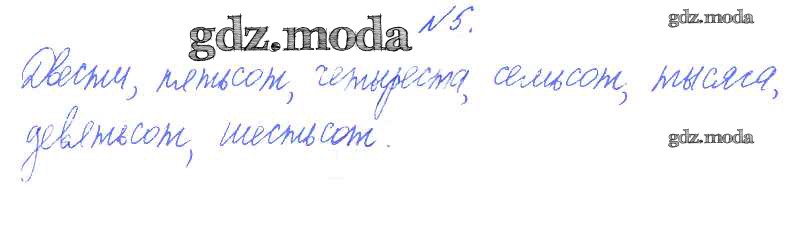 gdz.moda №5. gdz.moda
Двести, пятьсот, четыреста, семьсот, тысяча,
девятьсот, шестьсот. gdz.moda